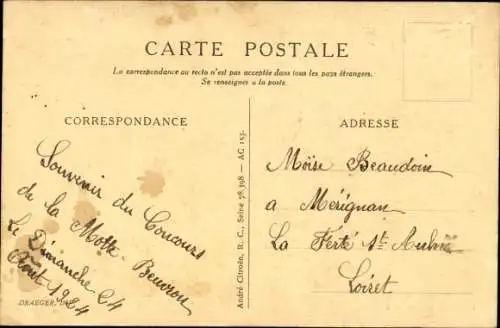 CARTE POSTALE
La correspondance au recto n'est pas acceptée dans tous les pays étrangers.
Se renseigner à la poste.
CORRESPONDANCE
Souvenir du Concours
de la Motte-Beuvron
Le Dimanche 24
Août 1924
DRAEGER,
André Citroën, R. C., Seine 78.398 — AG 153.
ADRESSE
Moïse Beaudoin
a Mérignan
La Ferté St Aubin
Loiret